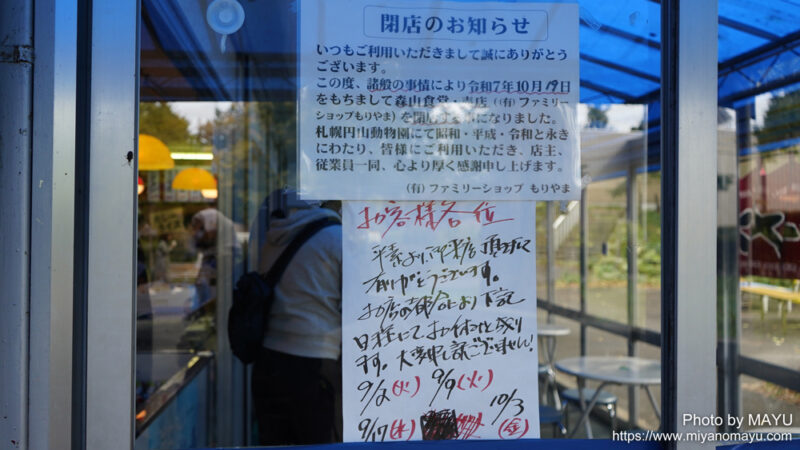 閉店のお知らせ
いつもご利用いただきまして誠にありがとう
ございます。
この度、諸般の事情により令和7年10月19日
をもちまして森山食堂・売店((有)ファミリー
ショップもりやま)を閉店する事になりました。
札幌円山動物園にて昭和・平成・令和と永き
にわたり、皆様にご利用いただき、店主、
従業員一同、心より厚く感謝申し上げます。
(有)ファミリーショップ もりやま
お客様各位
平素より御来店頂きまして
有りがとうございます。
お店の都合により下記
日程にてお休みと成り
ます。大変申し訳ございません!
9/2(火) 9/9(火)
9/17(水) 10/3(金)
Photo by MAYU
https://www.miyanomayu.com/